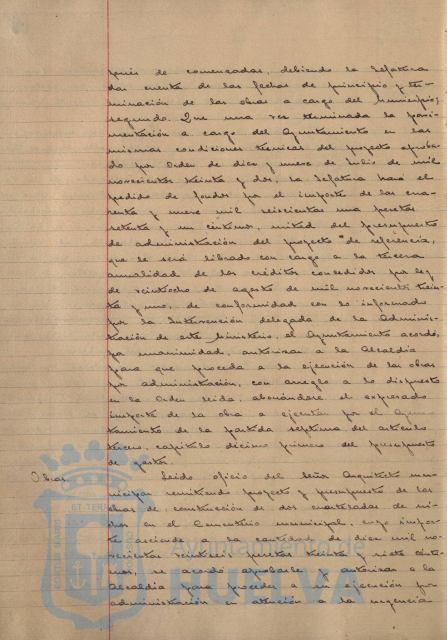 pués de comenzadas, debiendo la Jefatura
dar cuenta de las fechas de principio y ter-
minación de las obras a cargo del Municipio;
segundo. Que una vez terminada la pavi-
mentación a cargo del Ayuntamiento en las
mismas condiciones técnicas del proyecto aproba-
do por Orden de diez y nueve de Julio de mil
novecientos treinta y dos, la Jefatura hará el
pedido de fondos por el importe de las cua-
renta y nueve mil seiscientas una pesetas
setenta y un céntimos, mitad del presupuesto
de administración del proyecto de referencia,
que le será librado con cargo a la tercera
anualidad de los créditos concedidos por ley
de veintiocho de agosto de mil novecientos trein-
ta y uno, de conformidad con lo informado
por la Intervención delegada de la Adminis-
tración de este Ministerio, el Ayuntamiento acordó,
por unanimidad, autorizar a la Alcaldía
para que proceda a la ejecución de las obras
por administración, con arreglo a lo dispuesto
en la Orden leída, abonándose el expresado
importe de la obra a ejecutar por el Ayun-
tamiento de la partida séptima del artículo
tercero, capítulo décimo primero del presupuesto
de gastos.
Obras. Leido oficio del Señor Arquitecto mu-
nicipal remitiendo proyecto y presupuesto de las
obras de construcción de dos cuarteladas de ni-
chos en el Cementerio municipal, cuyo impor-
te asciende a la cantidad de diez mil no-
vecientas veintiseis pesetas treinta y siete cénti-
mos, se acordó aprobarlo y autorizar a la
Alcaldía para proceder a su ejecución por
administración en atención a la urgencia
Ayuntamiento de
HUELVA